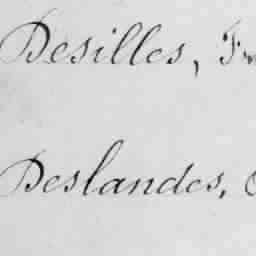 Desilles,
Deslandes,